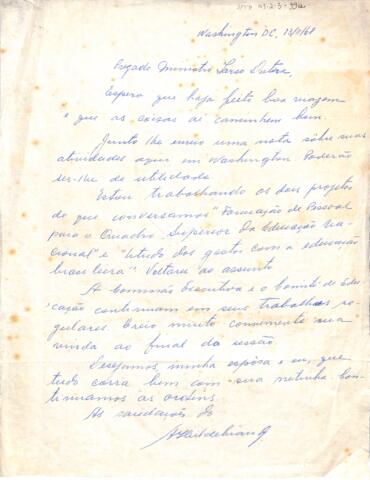 Washington DC, 13/11/68
Prezado Ministro Tarso Dutra,
Espero que haja feito boa viagem
e que as coisas aí caminhem bem.
Junto lhe envio uma nota sôbre suas
atividades aqui em Washington. Poderão
ser-lhe de utilidade.
Estou trabalhando os dois projetos
do que conversamos "Formação de Pessoal
para o Quadro Superior da Educação Na-
cional" e "Estudo dos gastos com a educação
brasileira". Voltarei ao assunto
A Commás Executiva e o Comité de Edu-
cação continuam em seus trabalhos re-
gulares. Creio muito conveniente sua
vinda ao final da sessão.
Desejamos, minha espôsa e eu, que
tudo corra bem com sua netinha. Con-
tinuamos as ordens.
As saudações do